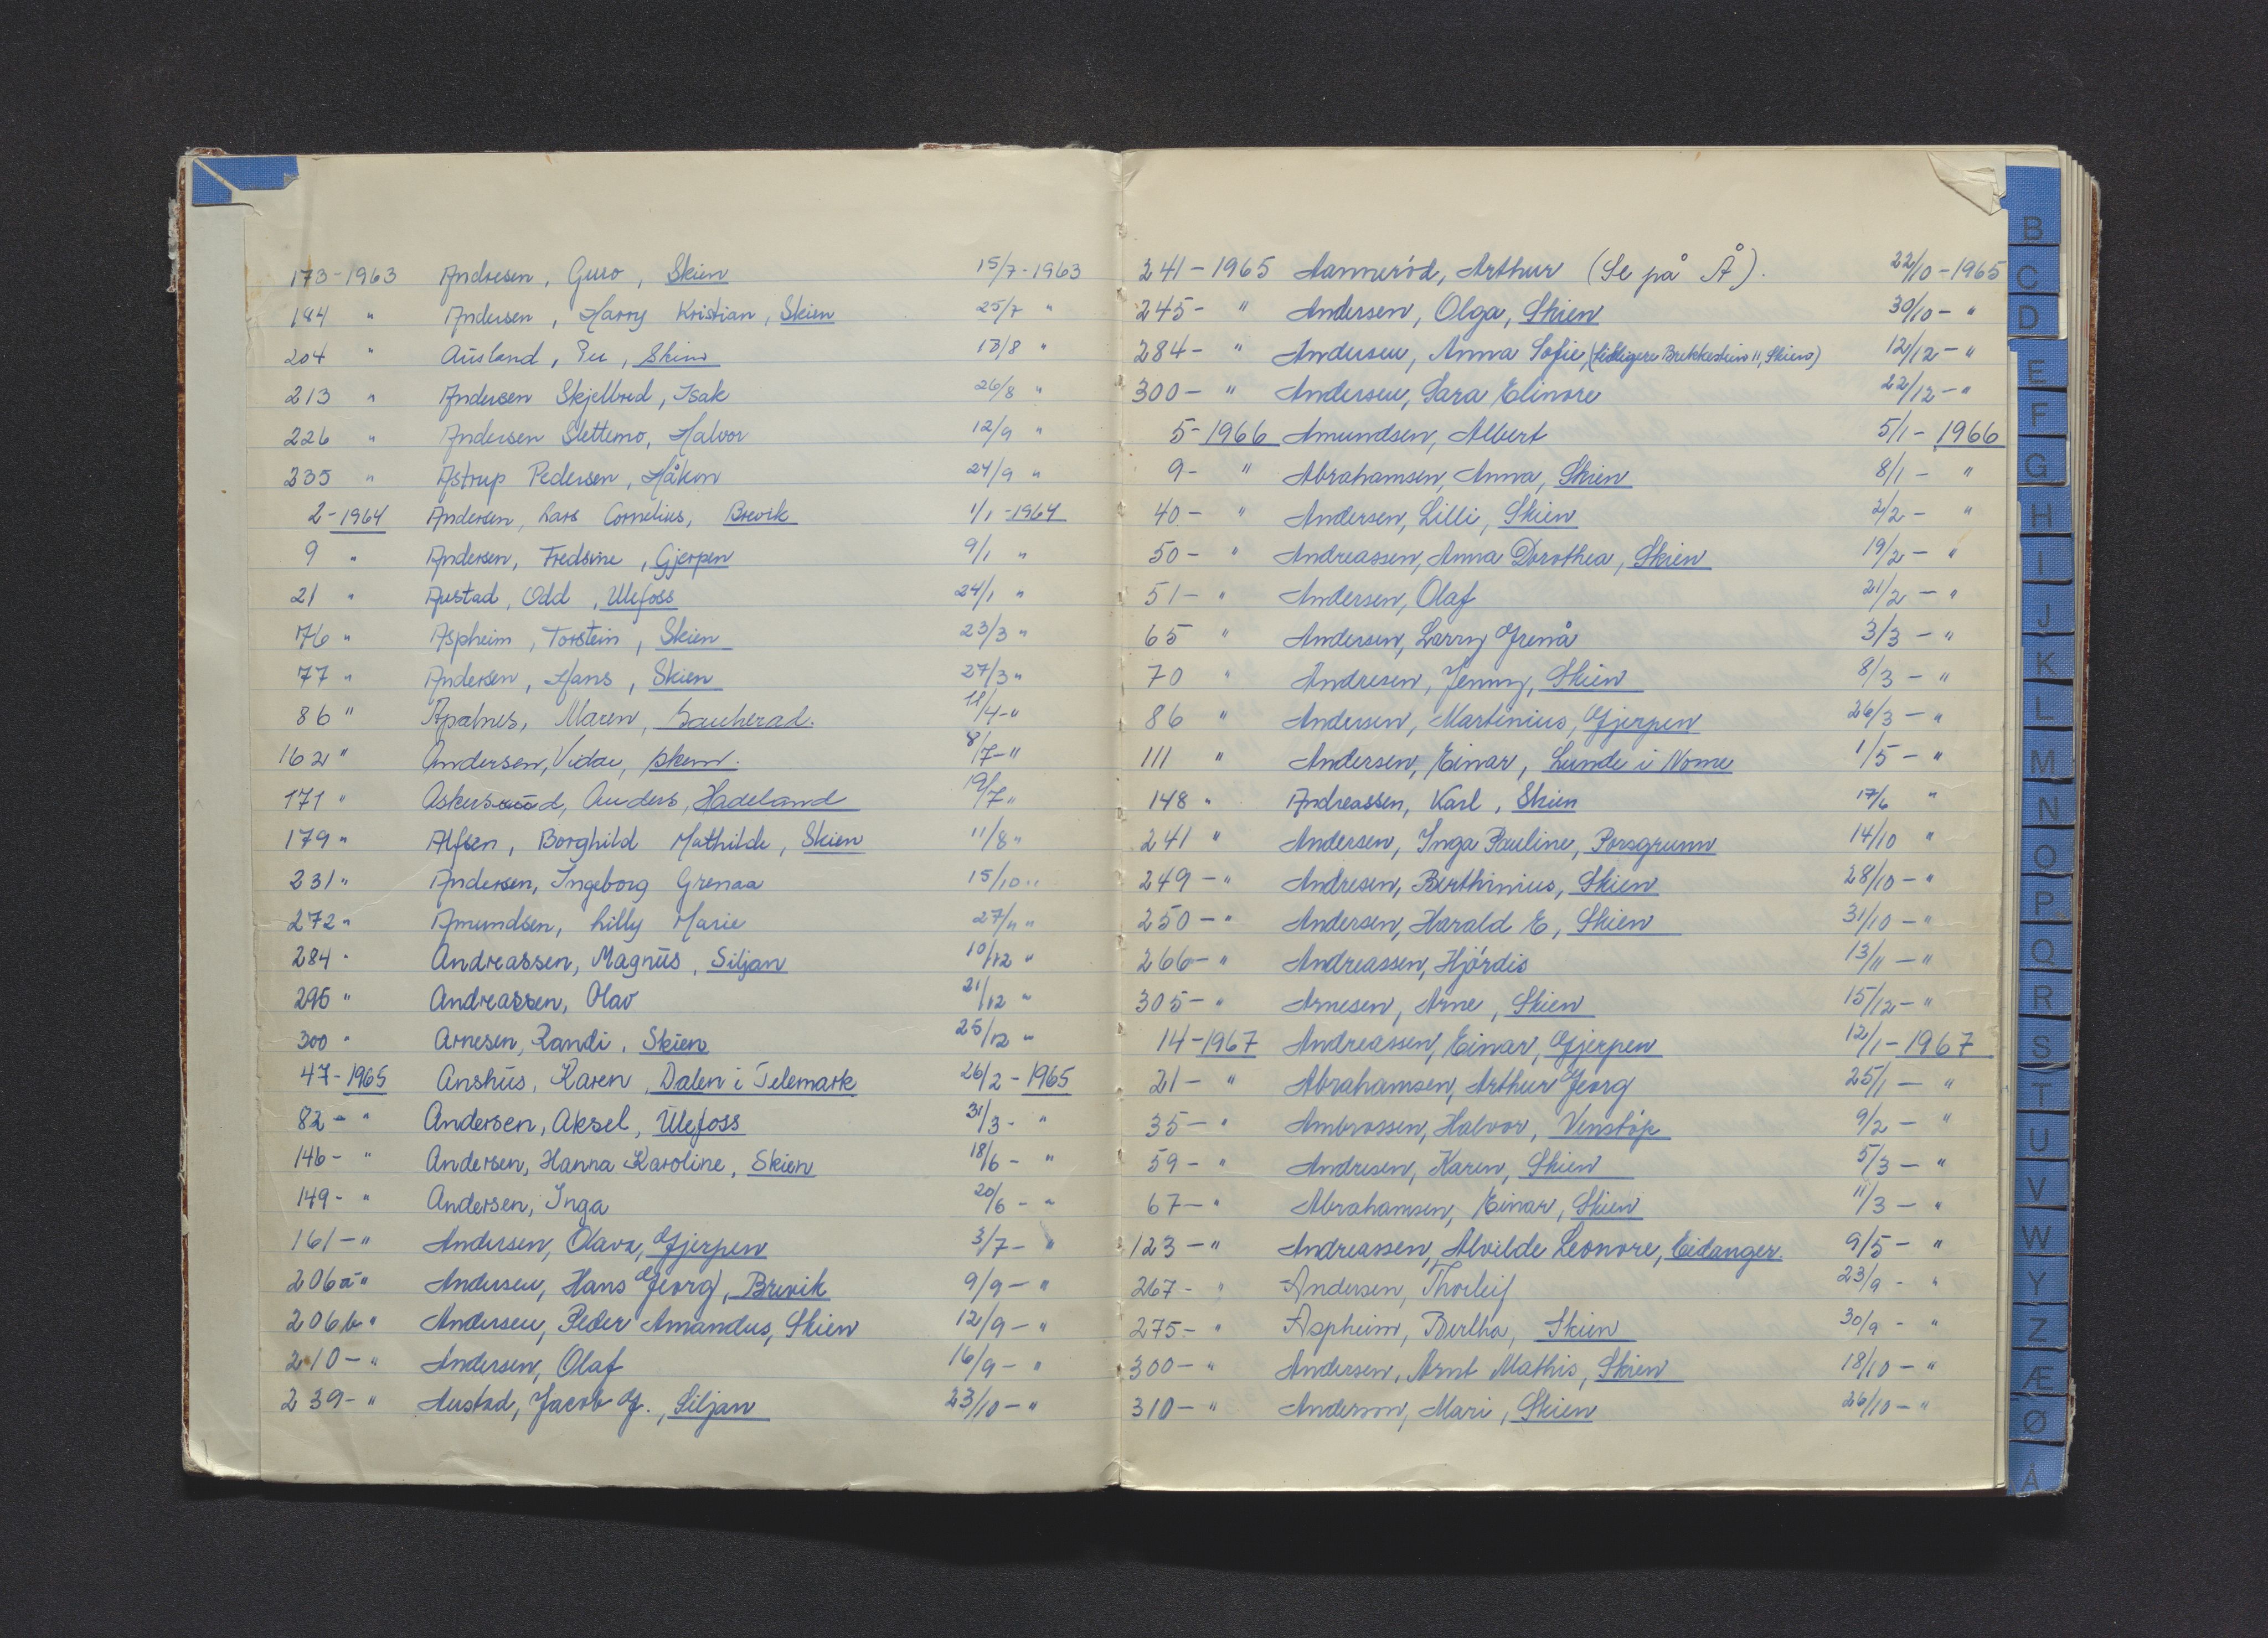 173-1963 Andresen, Guro, Skien 15/7-1963
184 " Andersen, Harry Kristian, Skien 25/7 "
204 " Ausland, Per, Skien 13/8 "
213 " Andersen Skjelbred, Isak 26/8 "
226 " Andersen Slettemo, Halvor 12/9 "
235 " Astrup Pedersen, Håkon 24/9 "
2-1964 Andersen, Lars Cornelius, Brevik 1/1-1964
9 " Andersen, Fredsine, Gjerpen 9/1 "
21 " Austad, Odd, Ulefoss 24/1 "
76 " Aspheim, Torstein, Skien 23/3 "
77 " Andersen, Hans, Skien 27/3 "
86 " Apalnes, Maren, Sauherad. 11/4-"
162 " Andersen, Vidar, Skien. 8/7-"
171 " Anders, Hadeland 19/7 "
179 " Alfsen, Borghild Mathilde, Skien 11/8 "
231 " Andersen, Ingeborg Grenaa 15/10 "
272 " Amundsen, Lilly Marie 27/11 "
284 " Andreassen, Magnus, Siljan 10/12 "
295 " Andreassen, Olav 21/12 "
300 " Arnesen, Randi, Skien 25/12 "
47-1965 Anshus, Karen, Dalen i Telemark 26/2-1965
82-" Andersen, Aksel, Ulefoss 31/3-"
146-" Andersen, Hanna Karoline, Skien 18/6-"
149-" Andersen, Inga 20/6-"
161-" Andersen, Olava, Gjerpen 3/7-"
206a-" Andersen, Hans Georg, Brevik 9/9-"
206b-" Andersen, Peder Amandus, Skien 12/9-"
210-" Andersen, Olaf 16/9-"
239-" Austad, Jacob G., Siljan 23/10-"
241-1965 Aannerød, Arthur (Se på Å). 22/10-1965
245-" Andersen, Olga, Skien 30/10-"
284-" Andersen, Anna Sofie, (tidligere 11, Skien) 12/12-"
300-" Andersen, Sara Elinore 22/12-"
5-1966 Amundsen, Albert 5/1-1966
9-" Abrahamsen, Anna, Skien 8/1-"
40-" Andersen, Lilli, Skien 2/2-"
50-" Andreassen, Anna Dorothea, Skien 19/2-"
51-" Andersen, Olaf 21/2-"
65 " Andersen, Larry Grenå 3/3-"
70 " Andresen, Jenny, Skien 8/3-"
86 " Andersen, Martinius, Gjerpen 26/3-"
111 " Andersen, Einar, Lunde i Nome 1/5-"
148 " Andreassen, Karl, Skien 17/6 "
241 " Andersen, Inga Pauline, Porsgrunn 14/10 "
249-" Andresen, Berthinius, Skien 28/10-"
250-" Andersen, Harald E, Skien 31/10-"
266-" Andreassen, Hjørdis 13/11-"
305-" Arnesen, Arne, Skien 15/12-"
14-1967 Andreassen, Einar, Gjerpen 12/1-1967
21-" Abrahamsen, Arthur Georg 25/1-"
35-" Ambrossen, Halvor, Venstøp 9/2-"
59-" Andresen, Karen, Skien 5/3-"
67-" Abrahamsen, Einar, Skien 11/3-"
123-" Andreassen, Alvilde Leonore, Eidanger. 9/5-"
267-" Andersen, Thorleif 23/9-"
275-" Aspheim, Bertha, Skien 30/9-"
300-" Andersen, Arnt Mathis, Skien 18/10-"
310-" Anderson, Mari, Skien 26/10-"
B
C
D
E
F
G
H
I
J
K
L
M
N
O
P
Q
R
S
T
U
V
W
Y
Z
Æ
Ø
Å